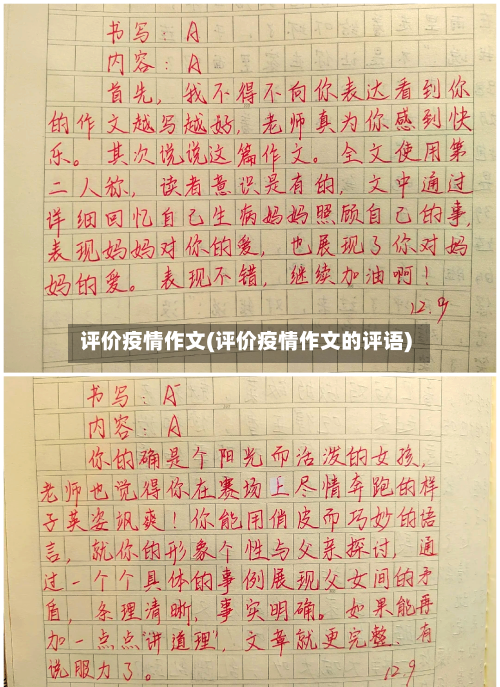 书写：A
内容：A
首先，我不得不向你表达看到你
的作文越写越好，老师真为你感到快
乐。其次说说这篇作文。全文使用第
二人称，读者意识是有的，文中通过
详细回忆自己生病妈妈照顾自己的事，
表现妈妈对你的爱，也展现了你对妈
妈的爱。表现不错，继续加油啊！
12.9
评价疫情作文(评价疫情作文的评语)
书写：A⁻
内容：A
你的确是个阳光而活泼的女孩，
老师也觉得你在赛场上尽情奔跑的样
子英姿飒爽！你能用俏皮而巧妙的语
言，就你的形象个性与父亲探讨，通
过一个个具体的事例展现父女间的矛
盾，条理清晰，事实明确。如果能再
加一点点“讲道理”，文章就更完整、有
说服力了。
12.9